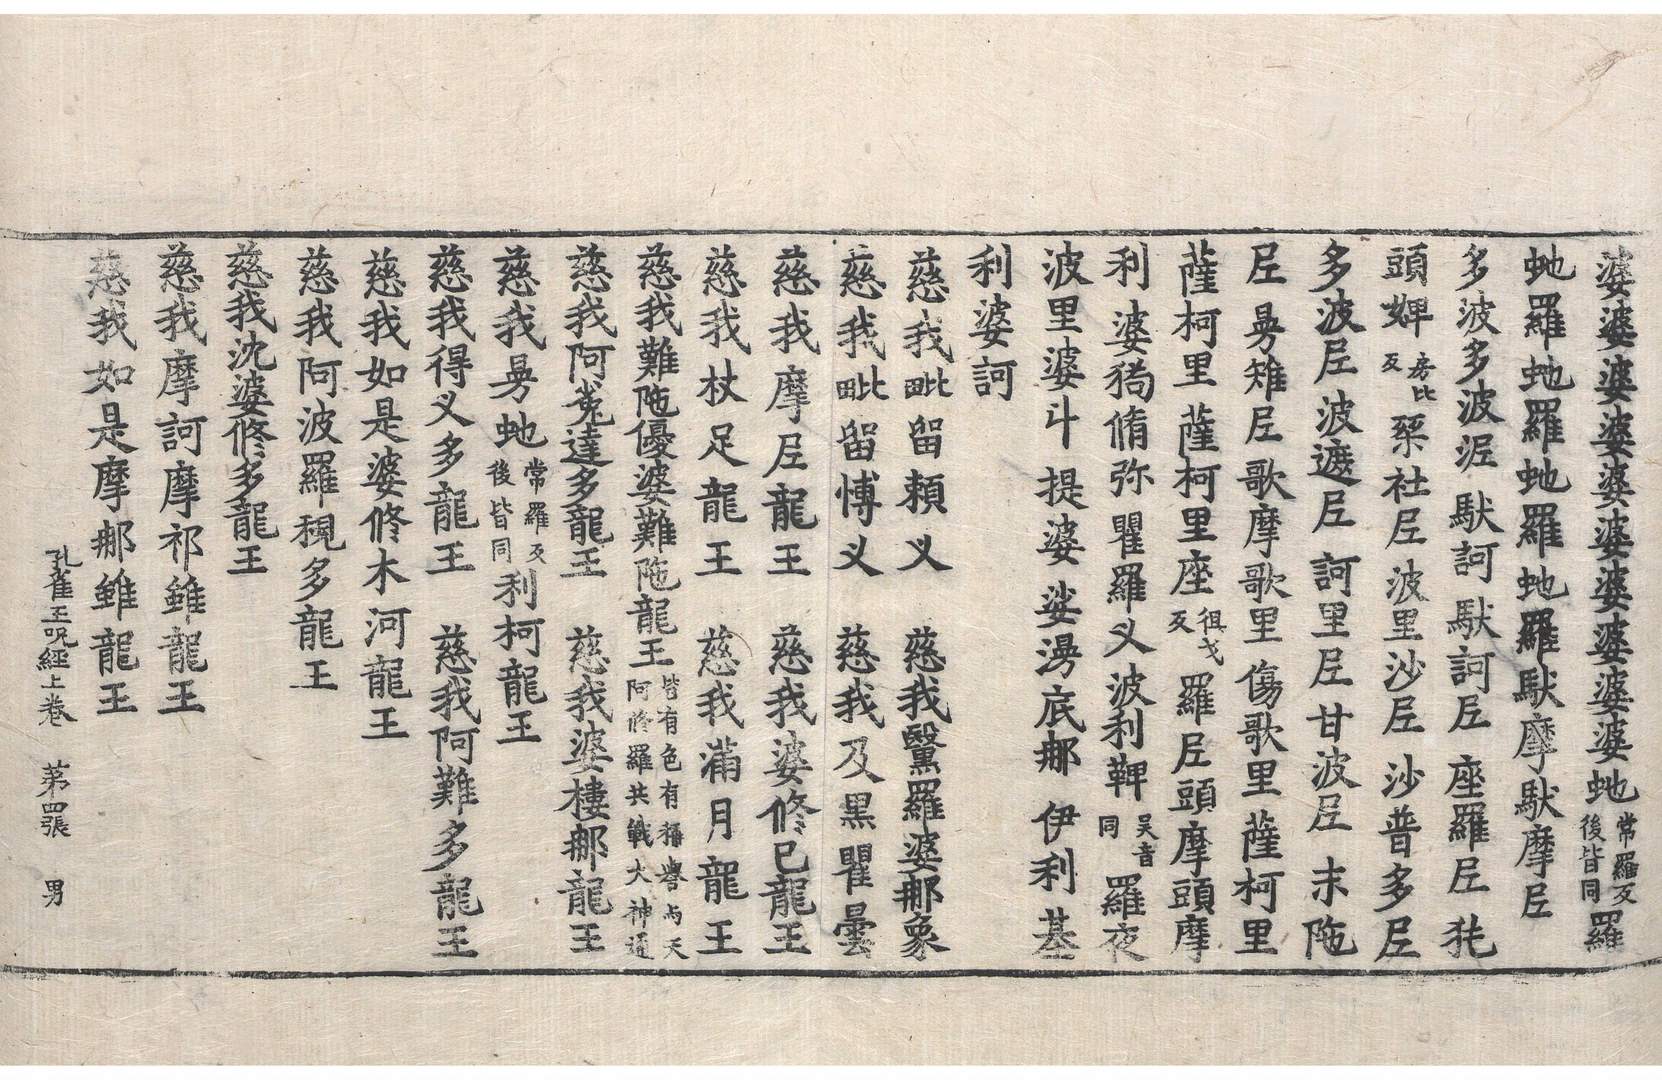 婆婆婆婆婆婆婆婆婆虵常羅反後皆同羅
虵羅虵羅虵羅虵羅馱摩馱摩𡰱
多波多波泥馱訶馱訶𡰱座羅𡰱㹠
頭婢房比反䅁社𡰱波里沙𡰱沙普多𡰱
多波𡰱波遮𡰱訶里𡰱甘波𡰱末陁
𡰱㝵雉𡰱歌摩歌里傷歌里薩柯里
薩柯里薩柯里座徂戈反羅𡰱頭摩頭摩
利婆㺃脩弥瞿羅义波利鞞吴音同羅夜
波里婆斗提婆娑㴰底𨚗伊利基
利婆訶
慈我毗留賴义 慈我醫羅婆𨚗象
慈我毗留愽义 慈我及黑瞿曇
慈我摩𡰱龍王 慈我婆修已龍王
慈我杖足龍王 慈我滿月龍王
慈我難陁優婆難陁龍王皆有色有稱譽与天阿修羅共戰大神通
慈我阿㝹達多龍王 慈我婆樓𨚗龍王
慈我㝵虵常羅反後皆同利柯龍王
慈我得义多龍王 慈我阿難多龍王
慈我如是婆修木河龍王
慈我阿波羅䅐多龍王
慈我沈婆修多龍王
慈我摩訶摩祁雖龍王
慈我如是摩𨚗雖龍王
孔雀王呪經上卷 苐四張 男